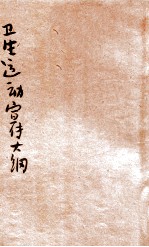 卫生运动宣传大纲